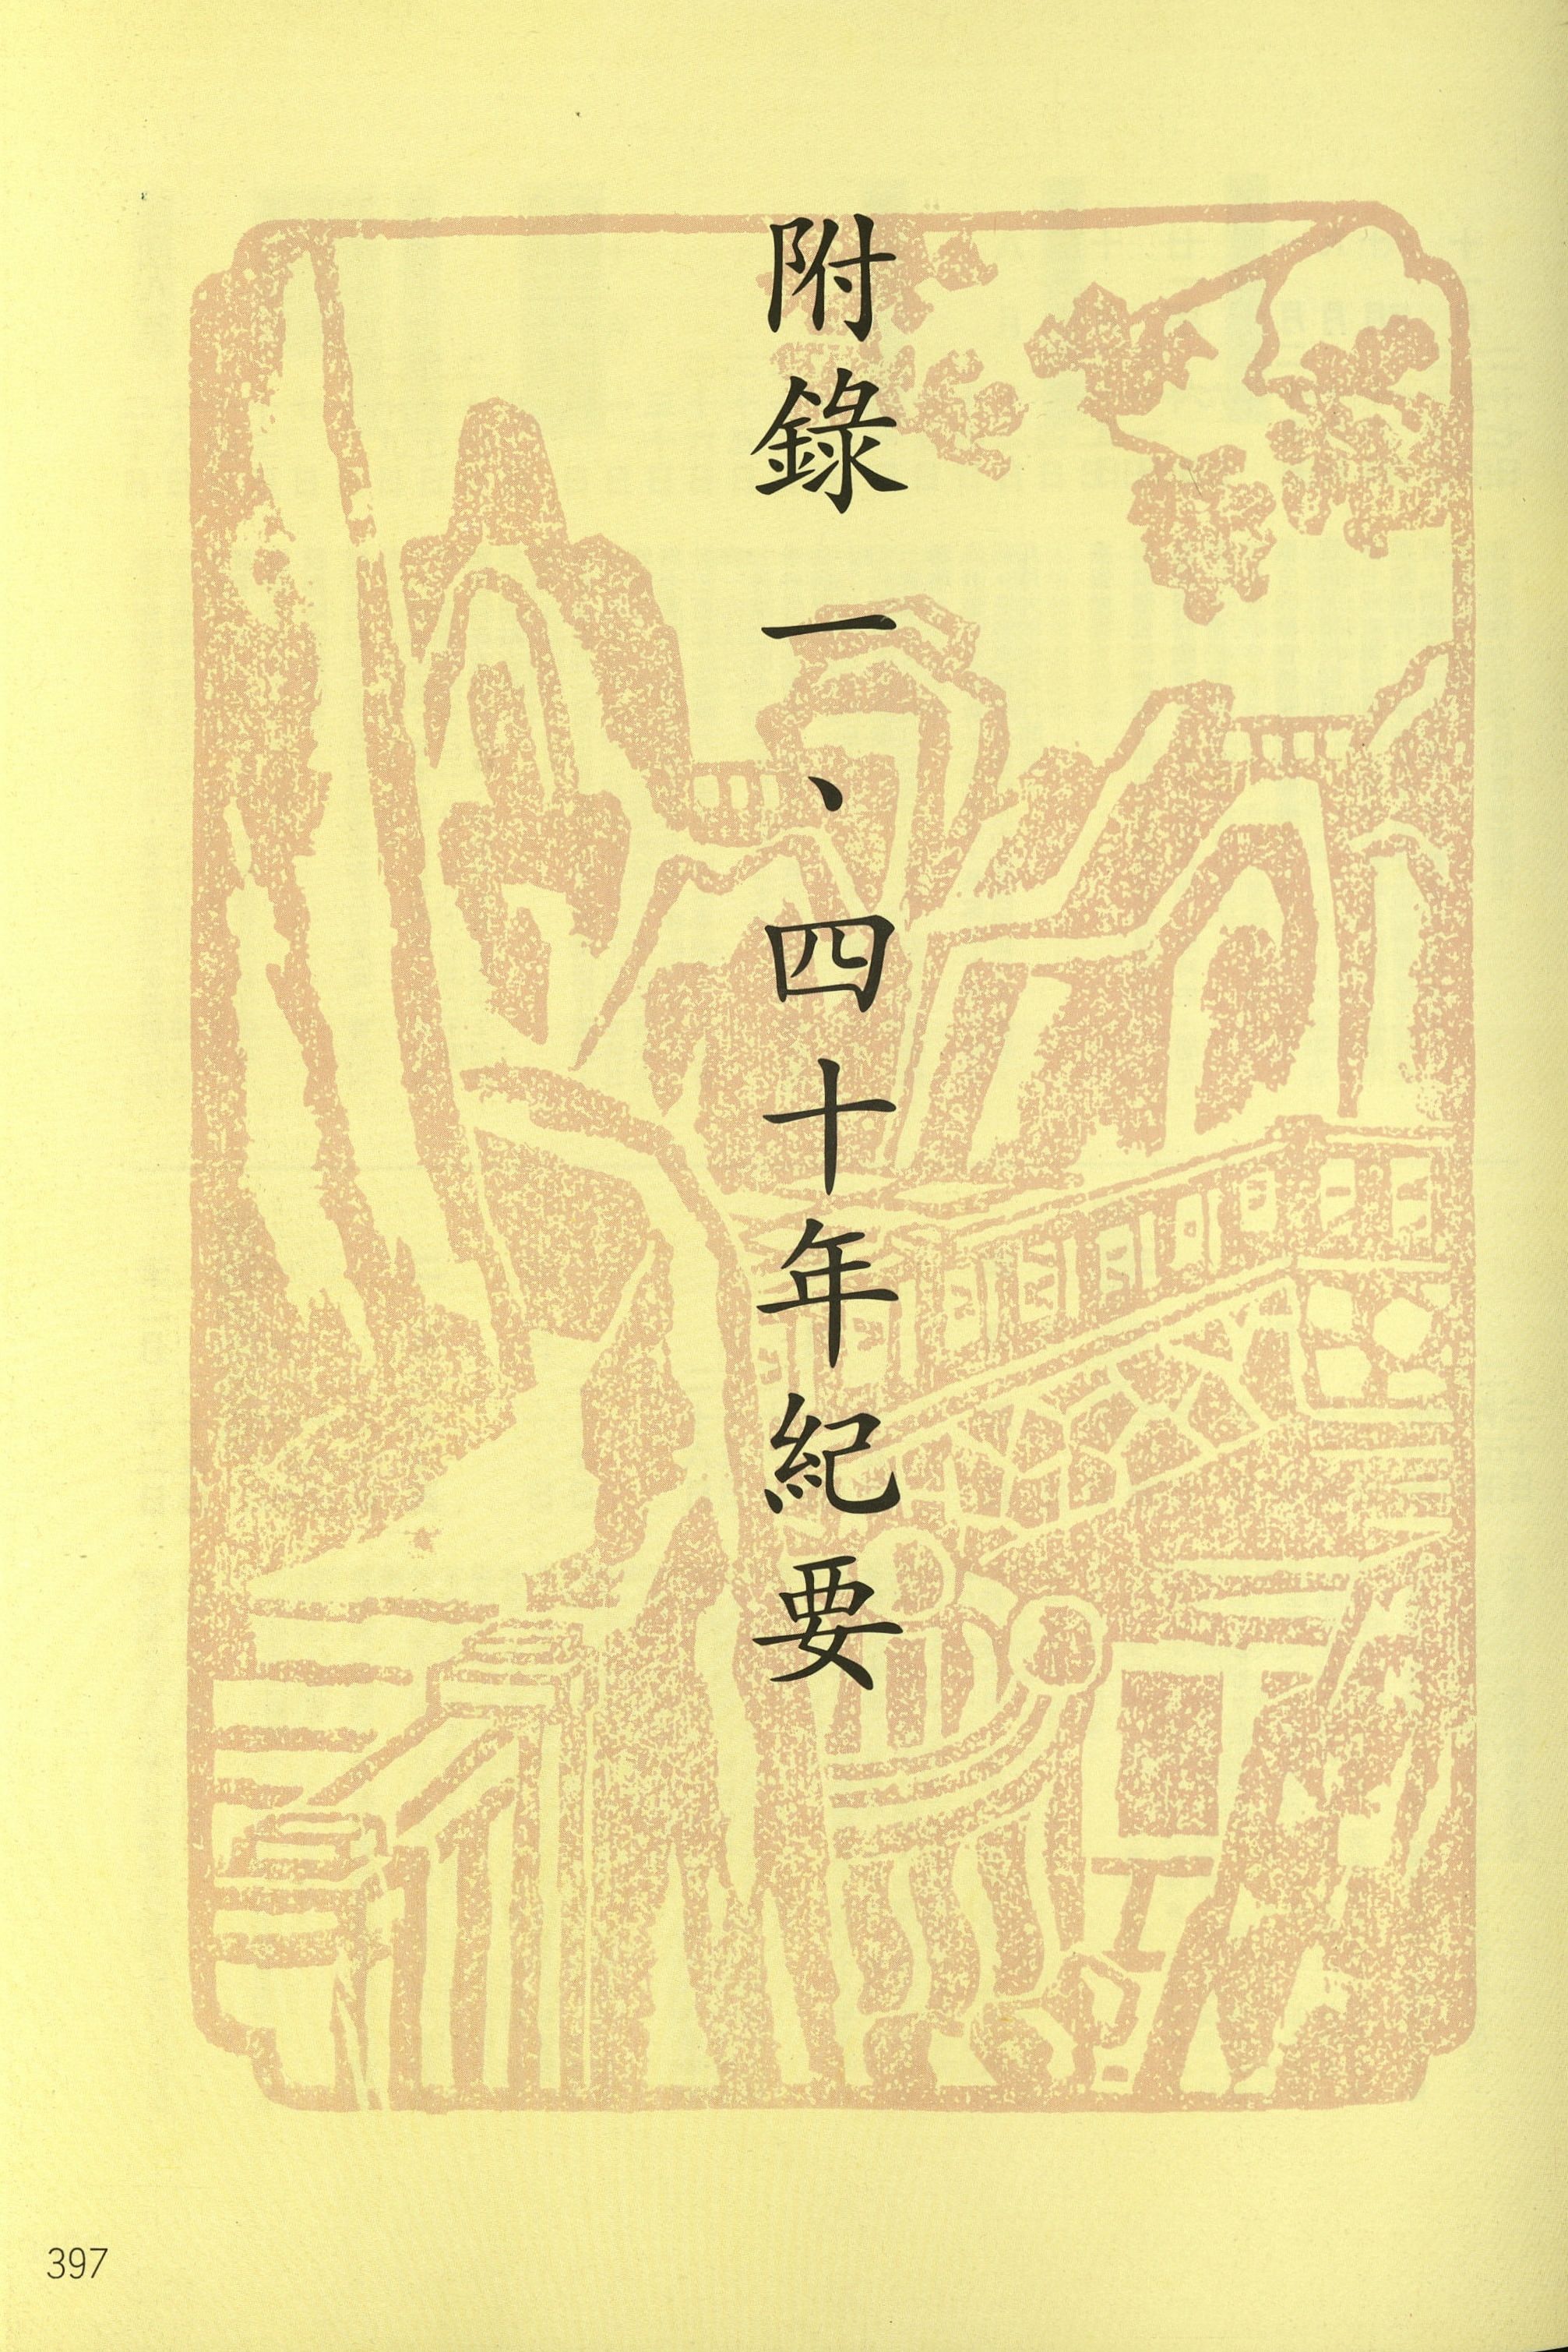 附錄一、四十年紀要
397